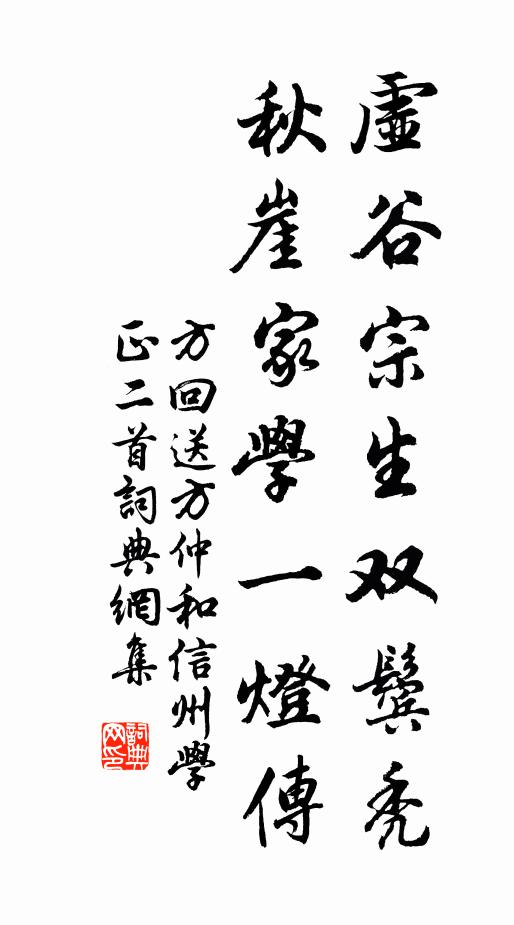 虛谷宗生双鬢禿
秋崖家學一燈傳
方回送方仲和信州學
正二首詞典網集
詞典网印